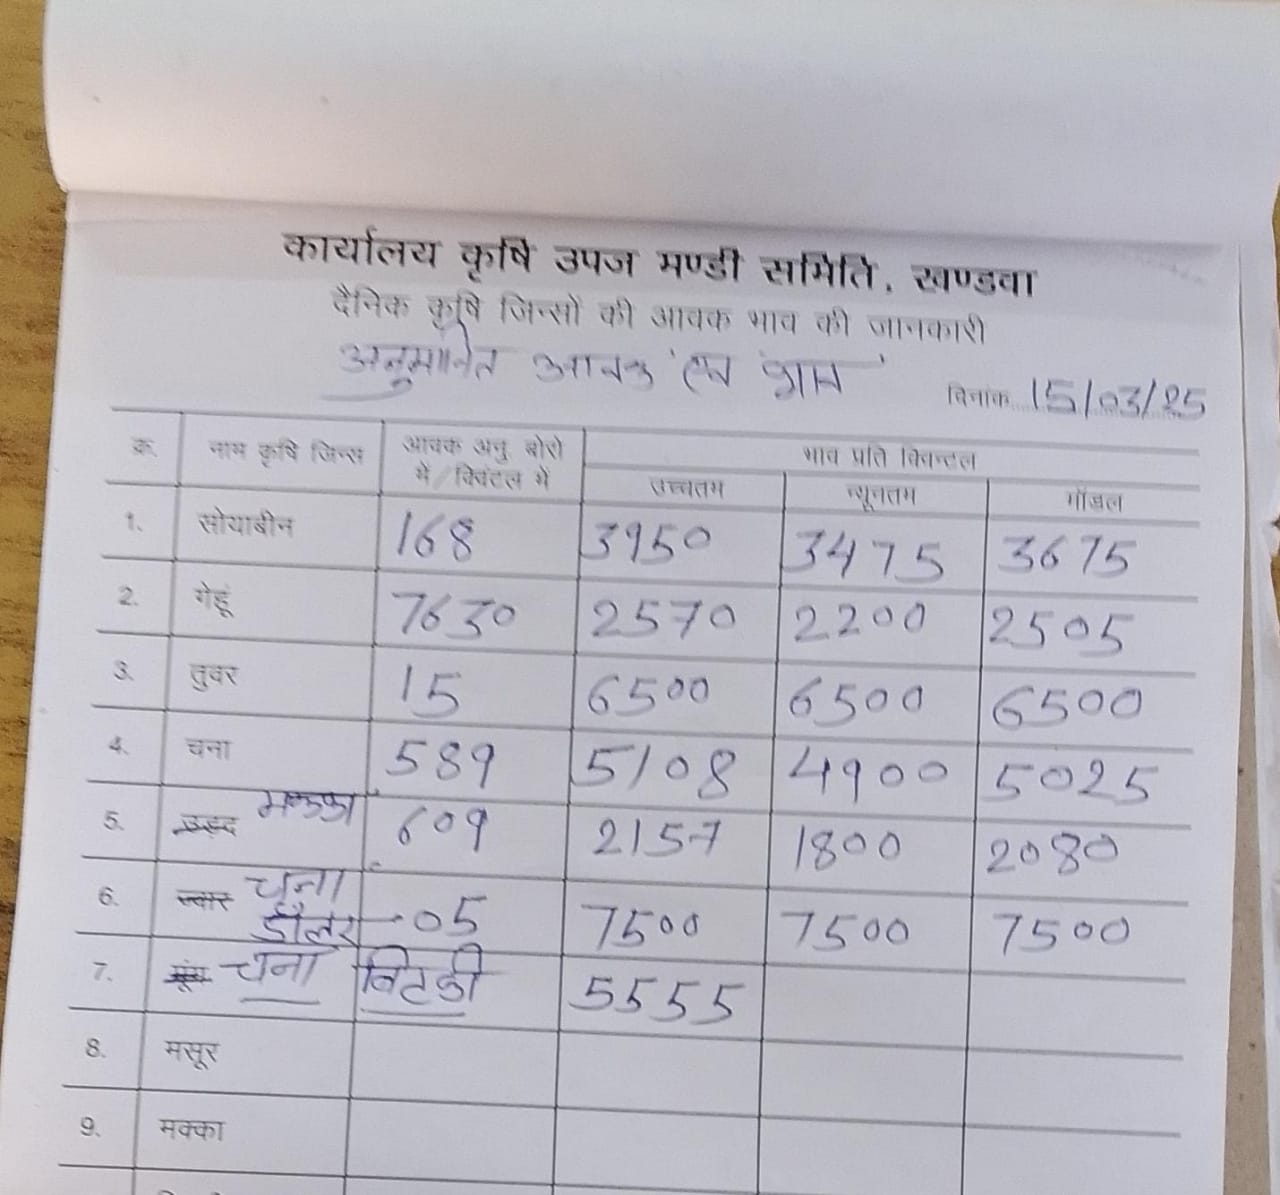 कार्यालय कृषि उपज मण्डी समिति, खण्डवा
दैनिक कृषि जिन्सों की आवक भाव की जानकारी
अनुमानित आवक एवं भाव
दिनांक 15/03/25
क्र. नाम कृषि जिन्स आवक अनु. बोरो में/क्विंटल में भाव प्रति क्विन्टल
उच्चतम न्यूनतम मॉडल
1. सोयाबीन 168 3950 3475 3675
2. गेहूं 7630 2570 2200 2505
3. तुवर 15 6500 6500 6500
4. चना 589 5108 4900 5025
5. उड़द मक्का 609 2157 1800 2080
6. ज्वार चना डॉलर 05 7500 7500 7500
7. मूंग चना बिटकी 5555
8. मसूर
9. मक्का